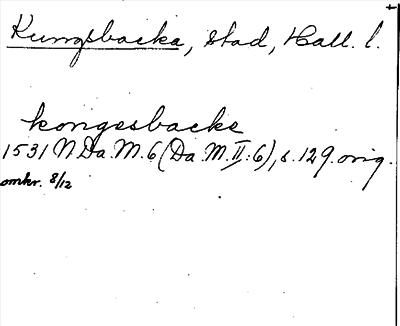 Kungsbacka, stad, Hall. l.
kongesbacke
1531 NDa.M. 6 (Da.M. II:6), s. 129. orig.
omkr. 8/12